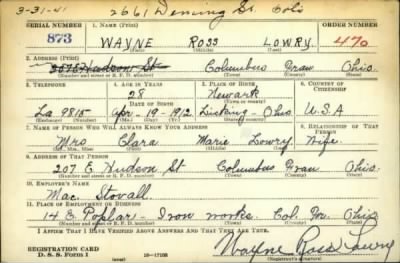 3-31-41 2661 Deming St. Cols
SERIAL NUMBER 1. NAME (Print) ORDER NUMBER
873 WAYNE ROSS LOWRY 470
(First) (Middle) (Last)
2. ADDRESS (Print)
207 E Hudson St Columbus Fran Ohio.
(Number and street or R. F. D. number) (Town) (County) (State)
3. TELEPHONE 4. AGE IN YEARS 5. PLACE OF BIRTH 6. COUNTRY OF CITIZENSHIP
28 Newark
DATE OF BIRTH (Town or county)
La 9815 Apr. 19 - 1912 Licking - Ohio U.S.A
(Exchange) (Number) (Mo.) (Day) (Yr.) (State or country)
7. NAME OF PERSON WHO WILL ALWAYS KNOW YOUR ADDRESS 8. RELATIONSHIP OF THAT PERSON
Mrs Clara Marie Lowry Wife
(Mr., Mrs., Miss) (First) (Middle) (Last)
9. ADDRESS OF THAT PERSON
207 E. Hudson St Columbus Fran Ohio.
(Number and street or R. F. D. number) (Town) (County) (State)
10. EMPLOYER'S NAME
Mac. Stovall.
11. PLACE OF EMPLOYMENT OR BUSINESS
14 E Poplar - Iron works. Col. Fr. Ohio
(Number and street or R. F. D. number) (Town) (County) (State)
I AFFIRM THAT I HAVE VERIFIED ABOVE ANSWERS AND THAT THEY ARE TRUE.
REGISTRATION CARD
D. S. S. Form 1 16-17105
Wayne Ross Lowry
(Registrant's signature)